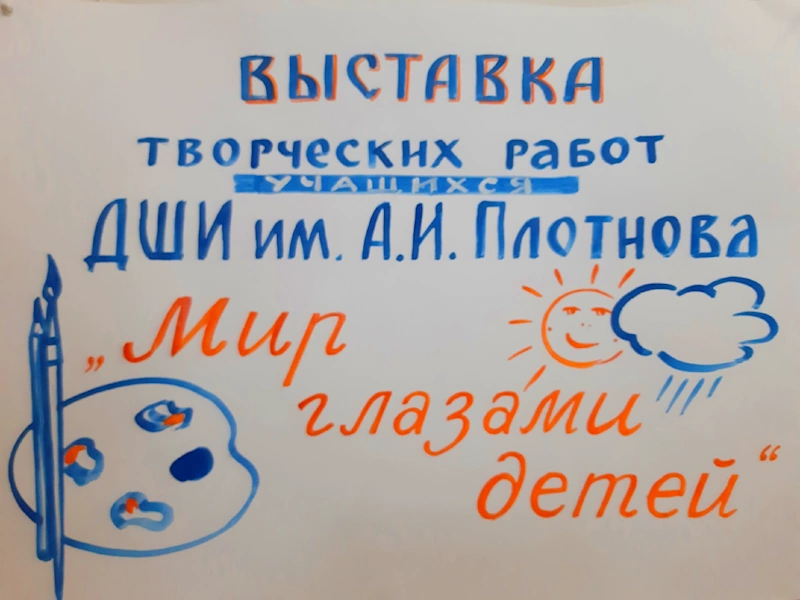 ВЫСТАВКА
ТВОРЧЕСКИХ РАБОТ
УЧАЩИХСЯ
ДШИ им. А.И. Плотнова
„Мир
глазами
детей“